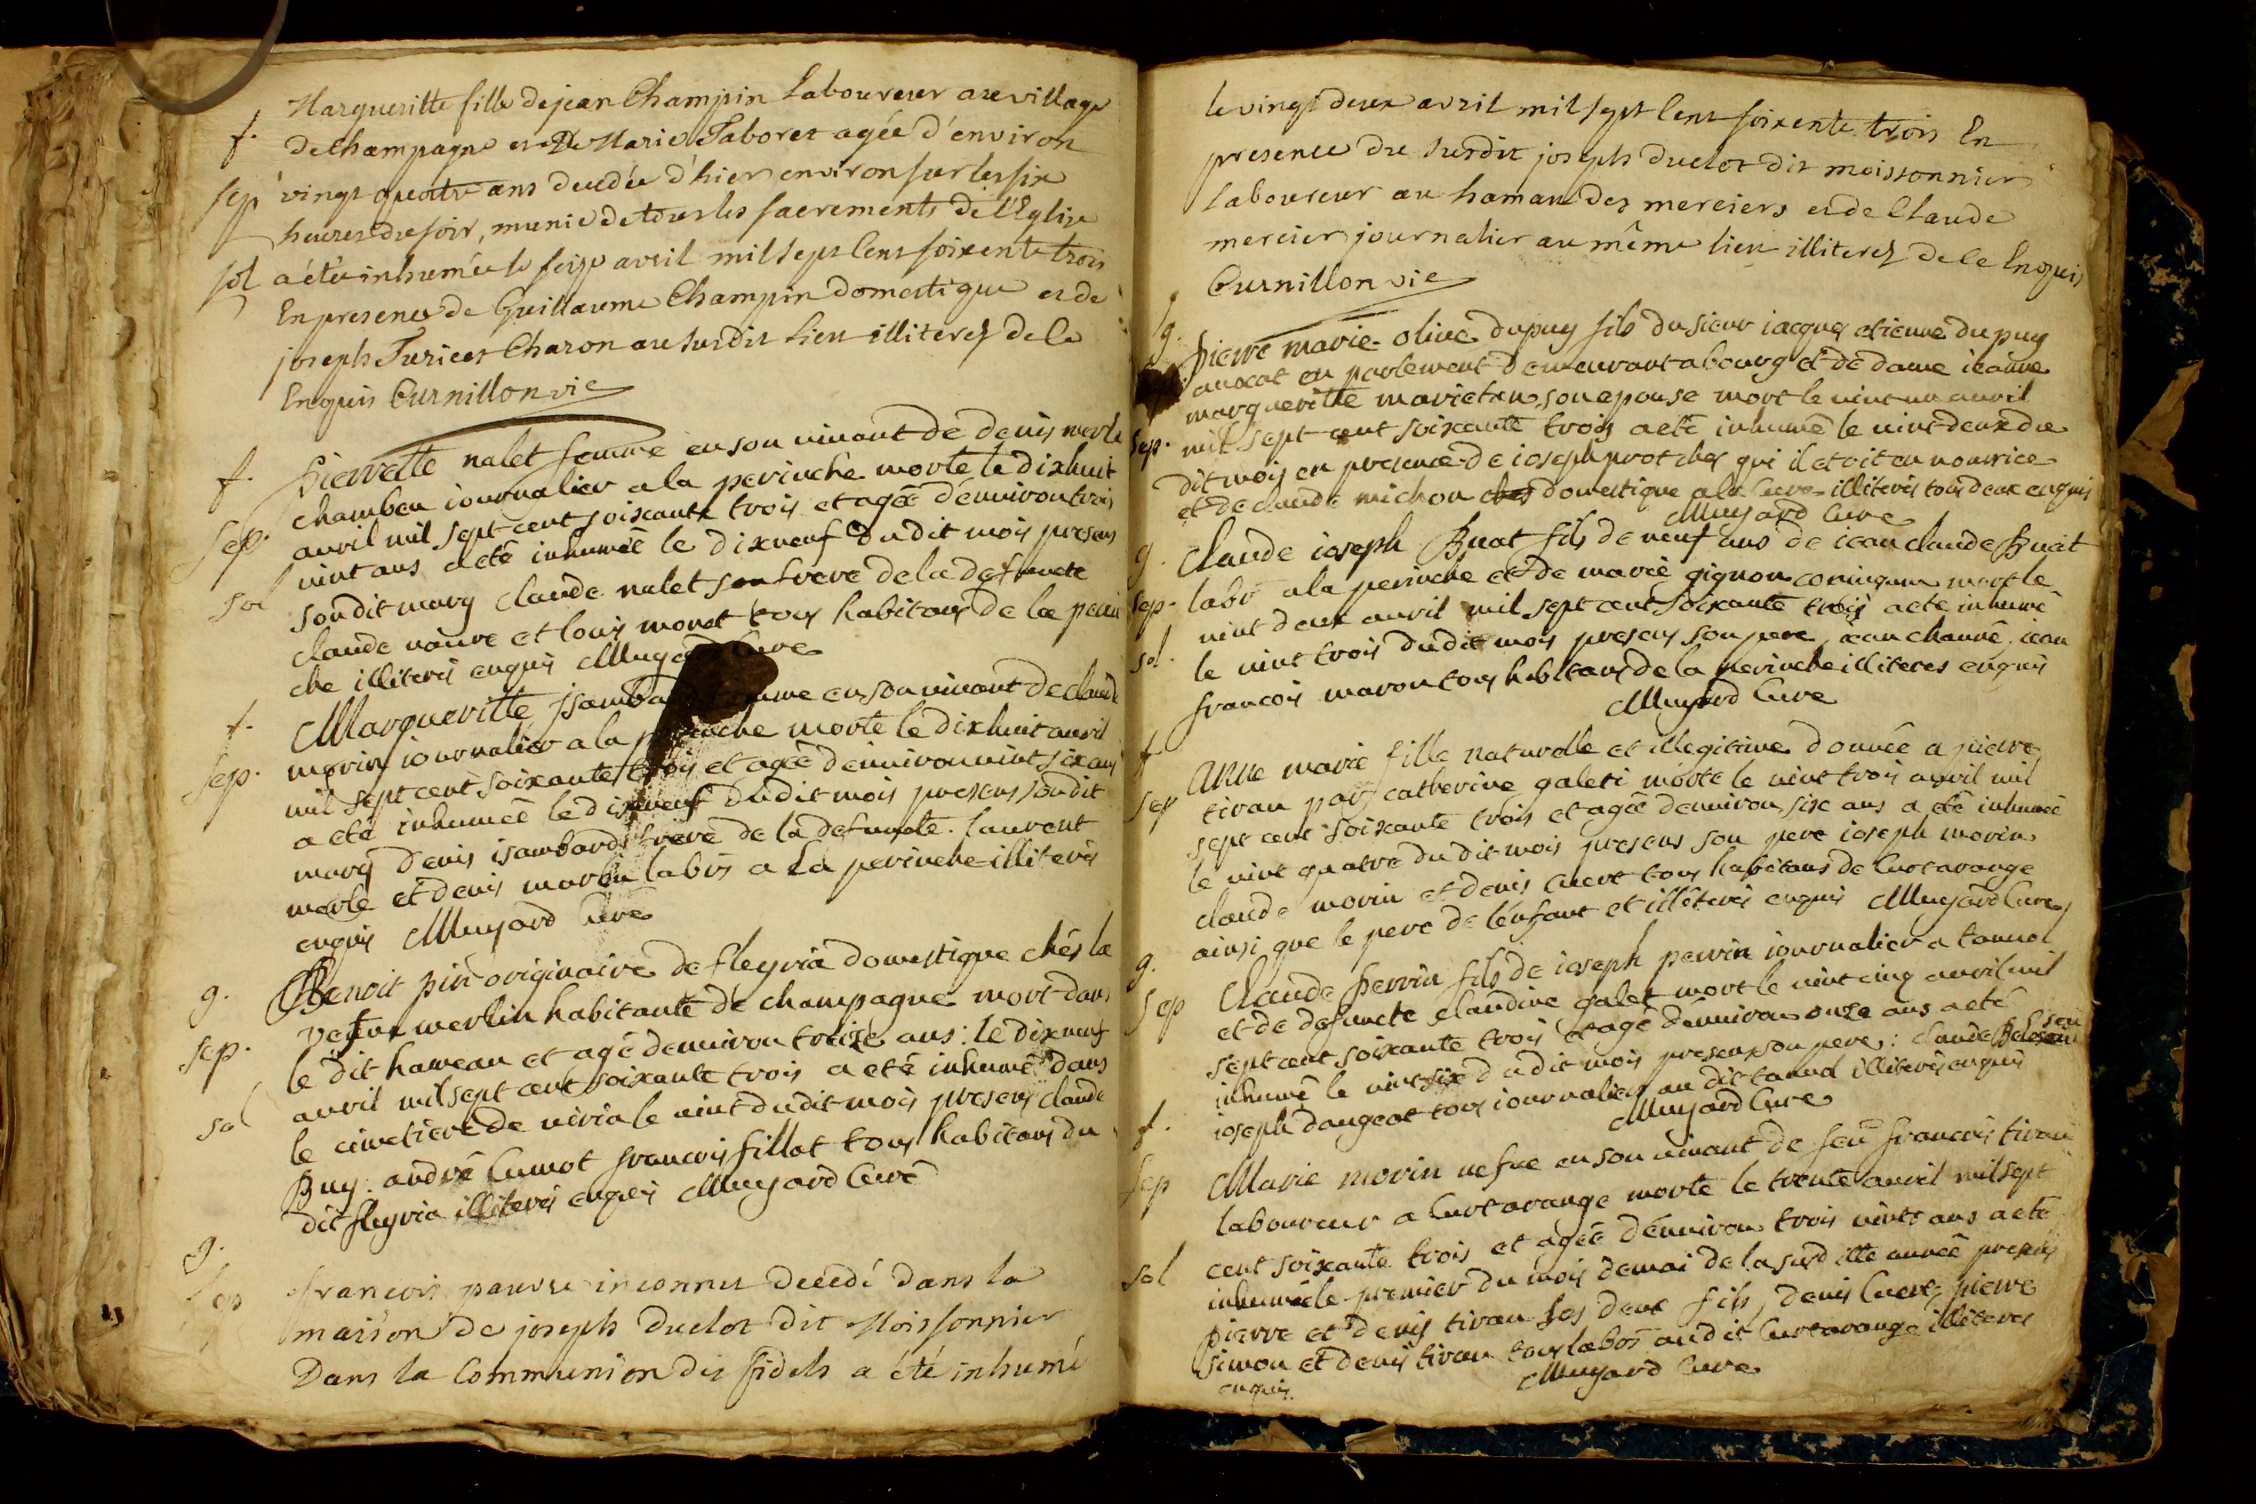 Margueritte fille de jean Champin Laboureur au village
f. de champagne et De Marie Taboret agée d'environ
sep vingt quattre ans decedée d'hier environ sur les six
heures du soir, munie de tous les sacrements de l'Eglise
sol a été inhumée le seize avril mil sept cens soixente trois
En presence de Guillaume Champin domestique et de
joseph Turier Charon au susdit lieu illiterez de ce
Enquis Curnillon vie
f. pierrette nalet femme en son vivant de denis merle
chambeu iournalier a la perinche morte le dixhuit
sep. avril mil sept cent soixante trois et agée d'environ trois
vint ans a eté inhumée le dixneuf du dit mois presens
sol son dit mary claude nalet son frere de la defuncte
claude et louis monet tous habitans de la perin
che illiterés enquis Muyard Cure
f. Margueritte isambard femme en son vivant de claude
sep. morin iournalier a la perinche morte le dixhuit avril
mil sept cent soixante trois et agée d'environ vint six ans
a eté inhumée le dixneuf du dit mois presens son dit
mary denis isambard frere de la defuncte. laurent
merle et denis morin labrs a la perinche illiterés
enquis Muyard Cure
g. Benoit pin originaire de fleyria domestique chés la
vefve merlin habitante de champagne mort dans
sep. le dit hameau et agé d'environ treize ans: le dixneuf
avril mil sept cent soixante trois a eté inhumé dans
sol le cimetiere de viria le vint du dit mois presens claude
Buy. andré Cumot françois fillot tous habitans du
dit fleyria illiterés enquis Muyard Curé
g.
sep francois pauvre inconnu decedé dans la
maison de joseph duclot dit Moissonnier
Dans la Communion des fidels a été inhumé
le vingt deux avril mil sept Cens soixente trois En
presence du susdit joseph duclot dit moissonnier
Laboureur au hamau des merciers et de Claude
mercier journalier au même lieu illiterez de ce Enquis
Curnillon vie
g. pierre marie olive dupuy fils du sieur iacques etienne dupuy
avocat en parlement demeurant a bourg et de dame ieanne
margueritte marietan son epouse mort le vint un avril
sep. mil sept cent soixante trois a eté inhumé le vint deux du
dit mois en presence de ioseph prot ches qui il etoit en nourrice
et de claude michon domestique a la Cure illiterés tous deux enquis
Muyard Cure
g. Claude ioseph Buat fils de neuf ans de iean claude Buat
sep. labr a la perinche et de marie gignon mort le
vint deux avril mil sept cent soixante trois a eté inhumé
sol. le vint trois du dit mois presens son pere, iean channé, iean
françois maron tous habitans de la perinche illiteres enquis
Muyard Cure
f anne marie fille naturelle et illegitime donnée a pierre
sep tivan par catherine galeti morte le vint trois avril mil
sept cent soixante trois et agée d'environ six ans a eté inhumée
le vint quatre du dit mois presens son pere ioseph morin
claude morin et denis cuert tous habitans de Curtarange
ainsi que le pere de l'enfant et illiterés enquis Muyard Cure
g. Claude perrin fils de ioseph perrin iournalier a tannol
sep et de defuncte claudine galet mort le vint cinq avril mil
sept cent soixante trois et agé d'environ onze ans a eté
inhumé le vint six du dit mois presens son pere: claude
ioseph dangeot tous iournaliers au dit tannol illiterés enquis
Muyard Cure
f.
sep Marie morin vefve en son vivant de feu françois tivan
laboureur a Curtarange morte le trente avril mil sept
cent soixante trois et agée d'environ trois vints ans a eté
sol inhumée le premier du mois de mai de la sus ditte année presens
pierre et denis tivan ses deux fils, denis Cuert, pierre
simon et denis tivan tous labrs au dit Curtarange illiteres
enquis. Muyard Cure